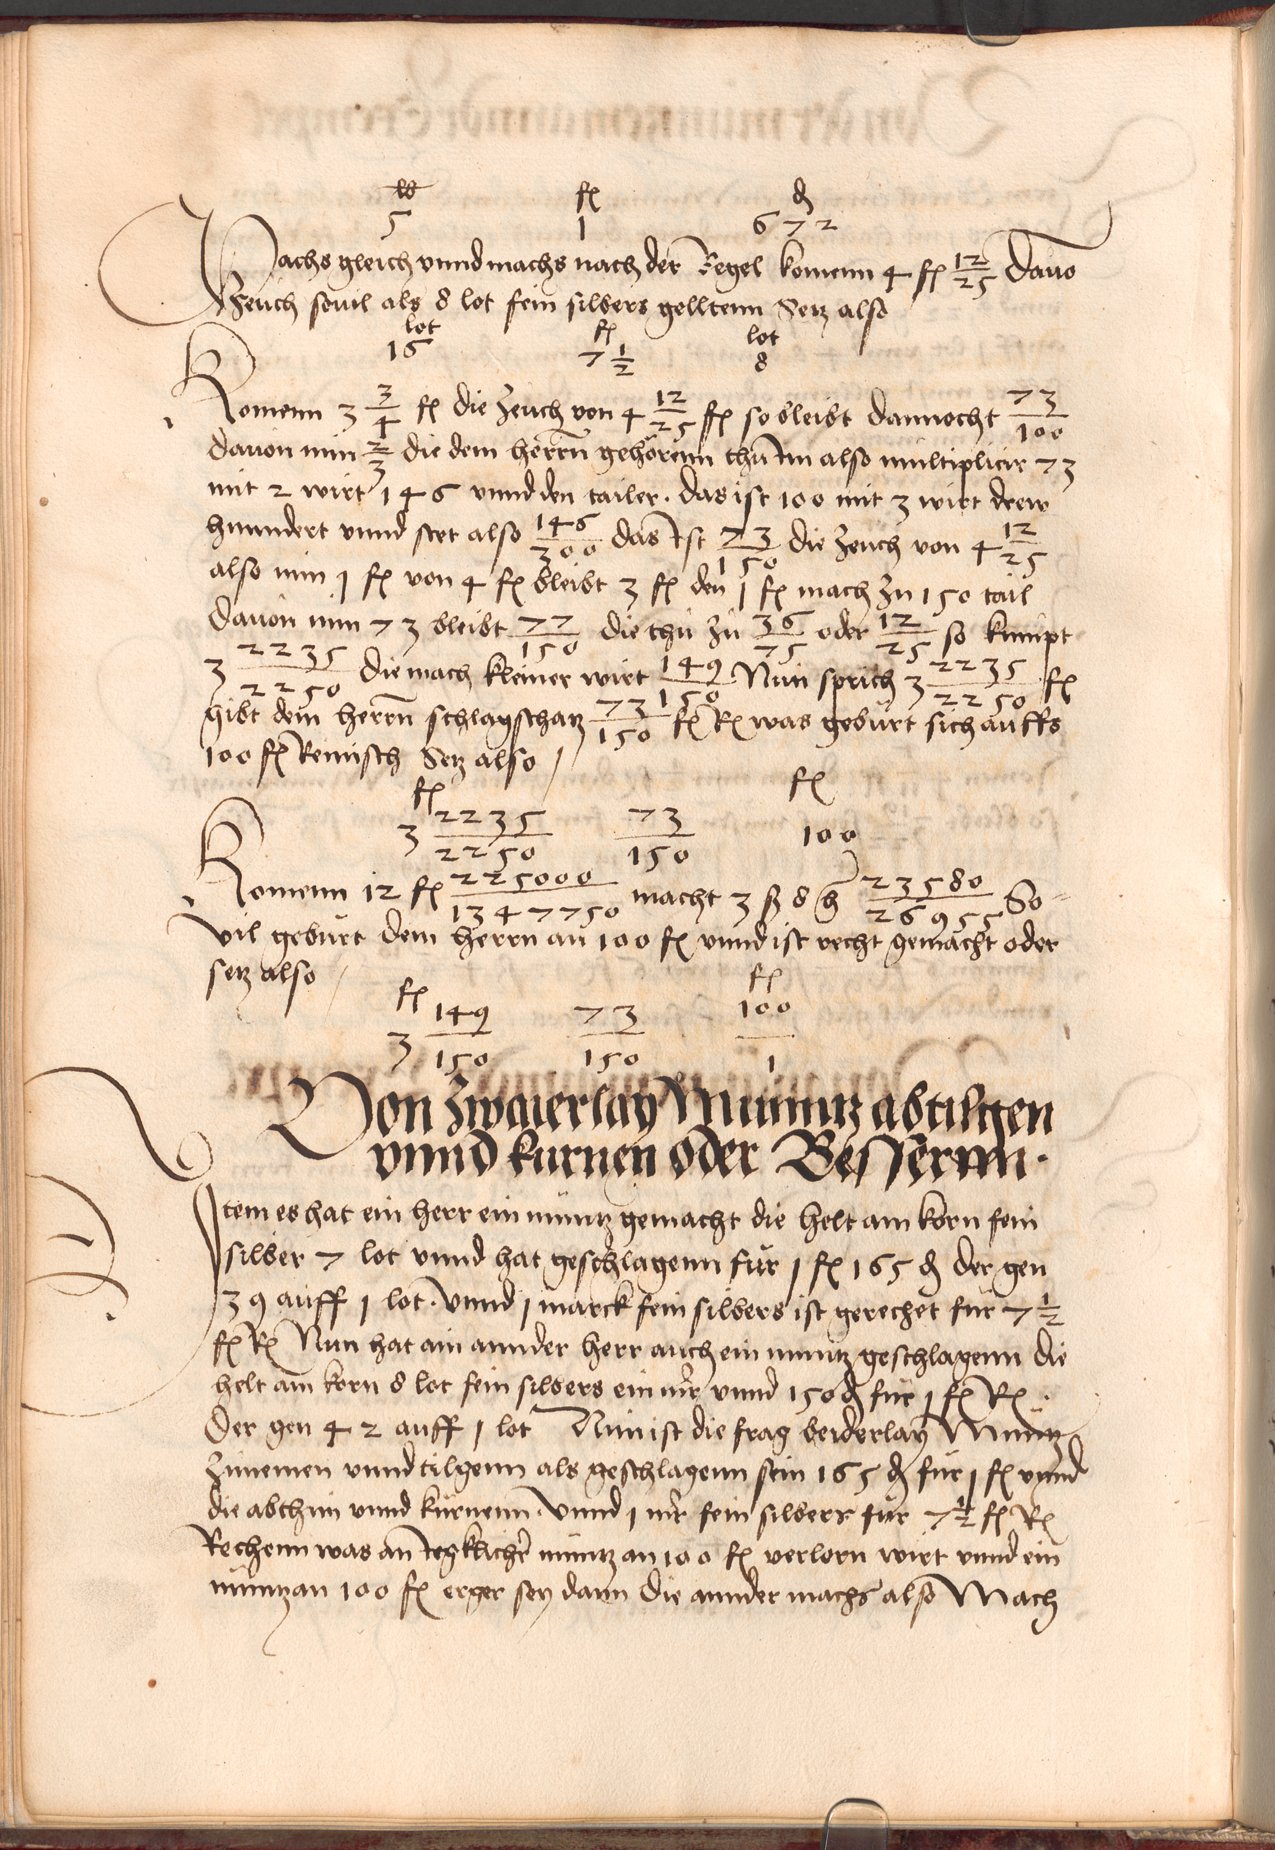 ℔ fl ₰
5 1 672
Machs gleich vnnd machs nach der Regel komenn 4 fl 12/25 Dauo
Zeuch souil als 8 lot fein silbers gelltenn Setz also
lot fl lot
16 7 1/2 8
Komenn 3 3/4 fl die zeuch von 4 12/25 fl so bleibt dannocht 73/100
dauon nim 2/3 die dem herrn gehörenn thu Im also multiplicir 73
mit 2 wirt 146 vnnd den tailer. das ist 100 mit 3 wirt drew
hunndert vnnd stet also 146/300 das Ist 73/150 die zeuch von 4 12/25
also nim 1 fl von 4 fl bleibt 3 fl den 1 fl mach zu 150 tail
Dauon nim 73 bleibt 77/150 die thu zu 36/75 oder 12/25 so kumpt
3 2235/2250 die mach kleiner wirt 149/150 Nun sprich 3 2235/2250 fl
gibt dem herrn schlagschatz 73/150 fl R was gebürt sich auffs
100 fl Reinisch Setz also
fl fl
3 2235/2250 73/150 100
Komenn 12 fl 225000/1347750 macht 3 ß 8 hl 23580/26955 So=
vil gebürt dem herrn an 100 fl vnnd ist recht gemacht oder
setz also
fl fl
3 149/150 73/150 100/1
Von Zwaierlay Münntz abtilgen
vnnd kurnen oder Bessernn.
Item es hat ein herr ein müntz gemacht die helt am korn fein
silber 7 lot vnnd hat geschlagenn für 1 fl 165 ₰ der gen
39 auff 1 lot. Vnnd 1 marck fein silbers ist gerechet für 7 1/2
fl R Nun hat ain annder herr auch ein müntz geschlagenn die
helt am korn 8 lot fein silbers ein mr vnnd 150 ₰ für 1 fl R.
Der gen 42 auff 1 lot Nun ist die frag beiderlay Müntz
zunemen vnnd tilgenn als geschlagenn sein 165 ₰ für 1 fl vnnd
die abthun vnnd kürnenn. Vnnd 1 mr fein silbers für 7 1/2 fl R
Rechenn was an Itzklicher müntz an 100 fl verlorn wirt vnnd ein
müntz an 100 fl erger sey dann die annder machs also Mach